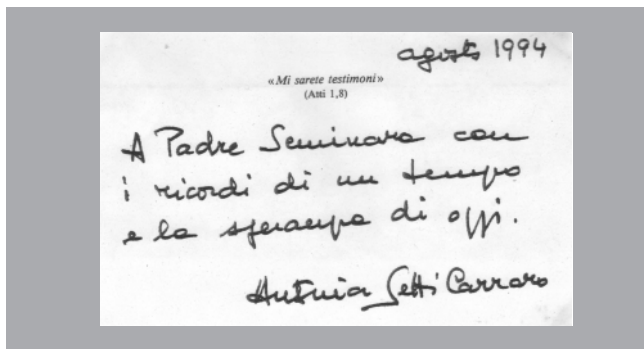 agosto 1994
«Mi sarete testimoni»
(Atti 1,8)
A Padre Seminara con
i ricordi di un tempo
e la speranza di oggi.
Antonia Setti Carraro